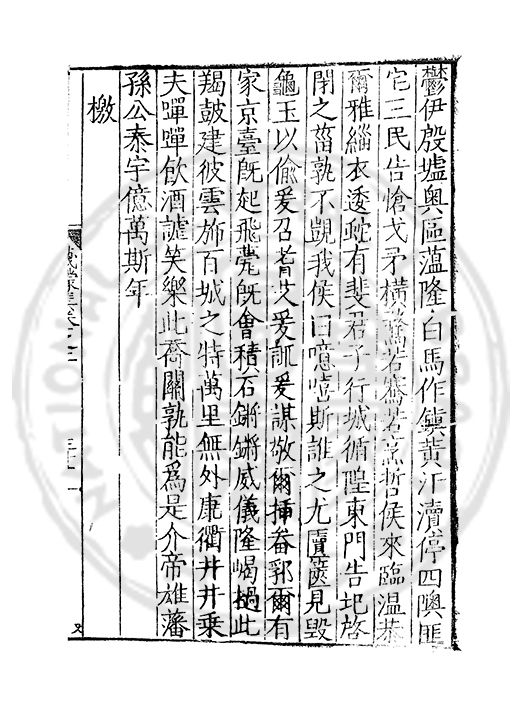 鬱伊殷墟奥區薀隆白馬作鎮黄河瀆停四隩匪
宅三民告愴戈矛橫騖若騫若烹哲侯來臨温恭
爾雅緇衣逶蛇有斐君子行城循隍東門告圮啓
閉之菑孰不覬我侯曰噫嘻斯誰之尤匵匧見毁
龜玉以偷爰召耆艾爰諏爰謀敬爾揷畚郛爾有
家京臺旣起飛甍旣會積石鏘鏘威儀隆嵑撾此
羯鼓建彼雲斾百城之特萬里無外康衢井井乗
夫嘽嘽飲酒謔笑樂此喬關孰能爲是介帝雄藩
孫公泰宇億萬斯年
檄